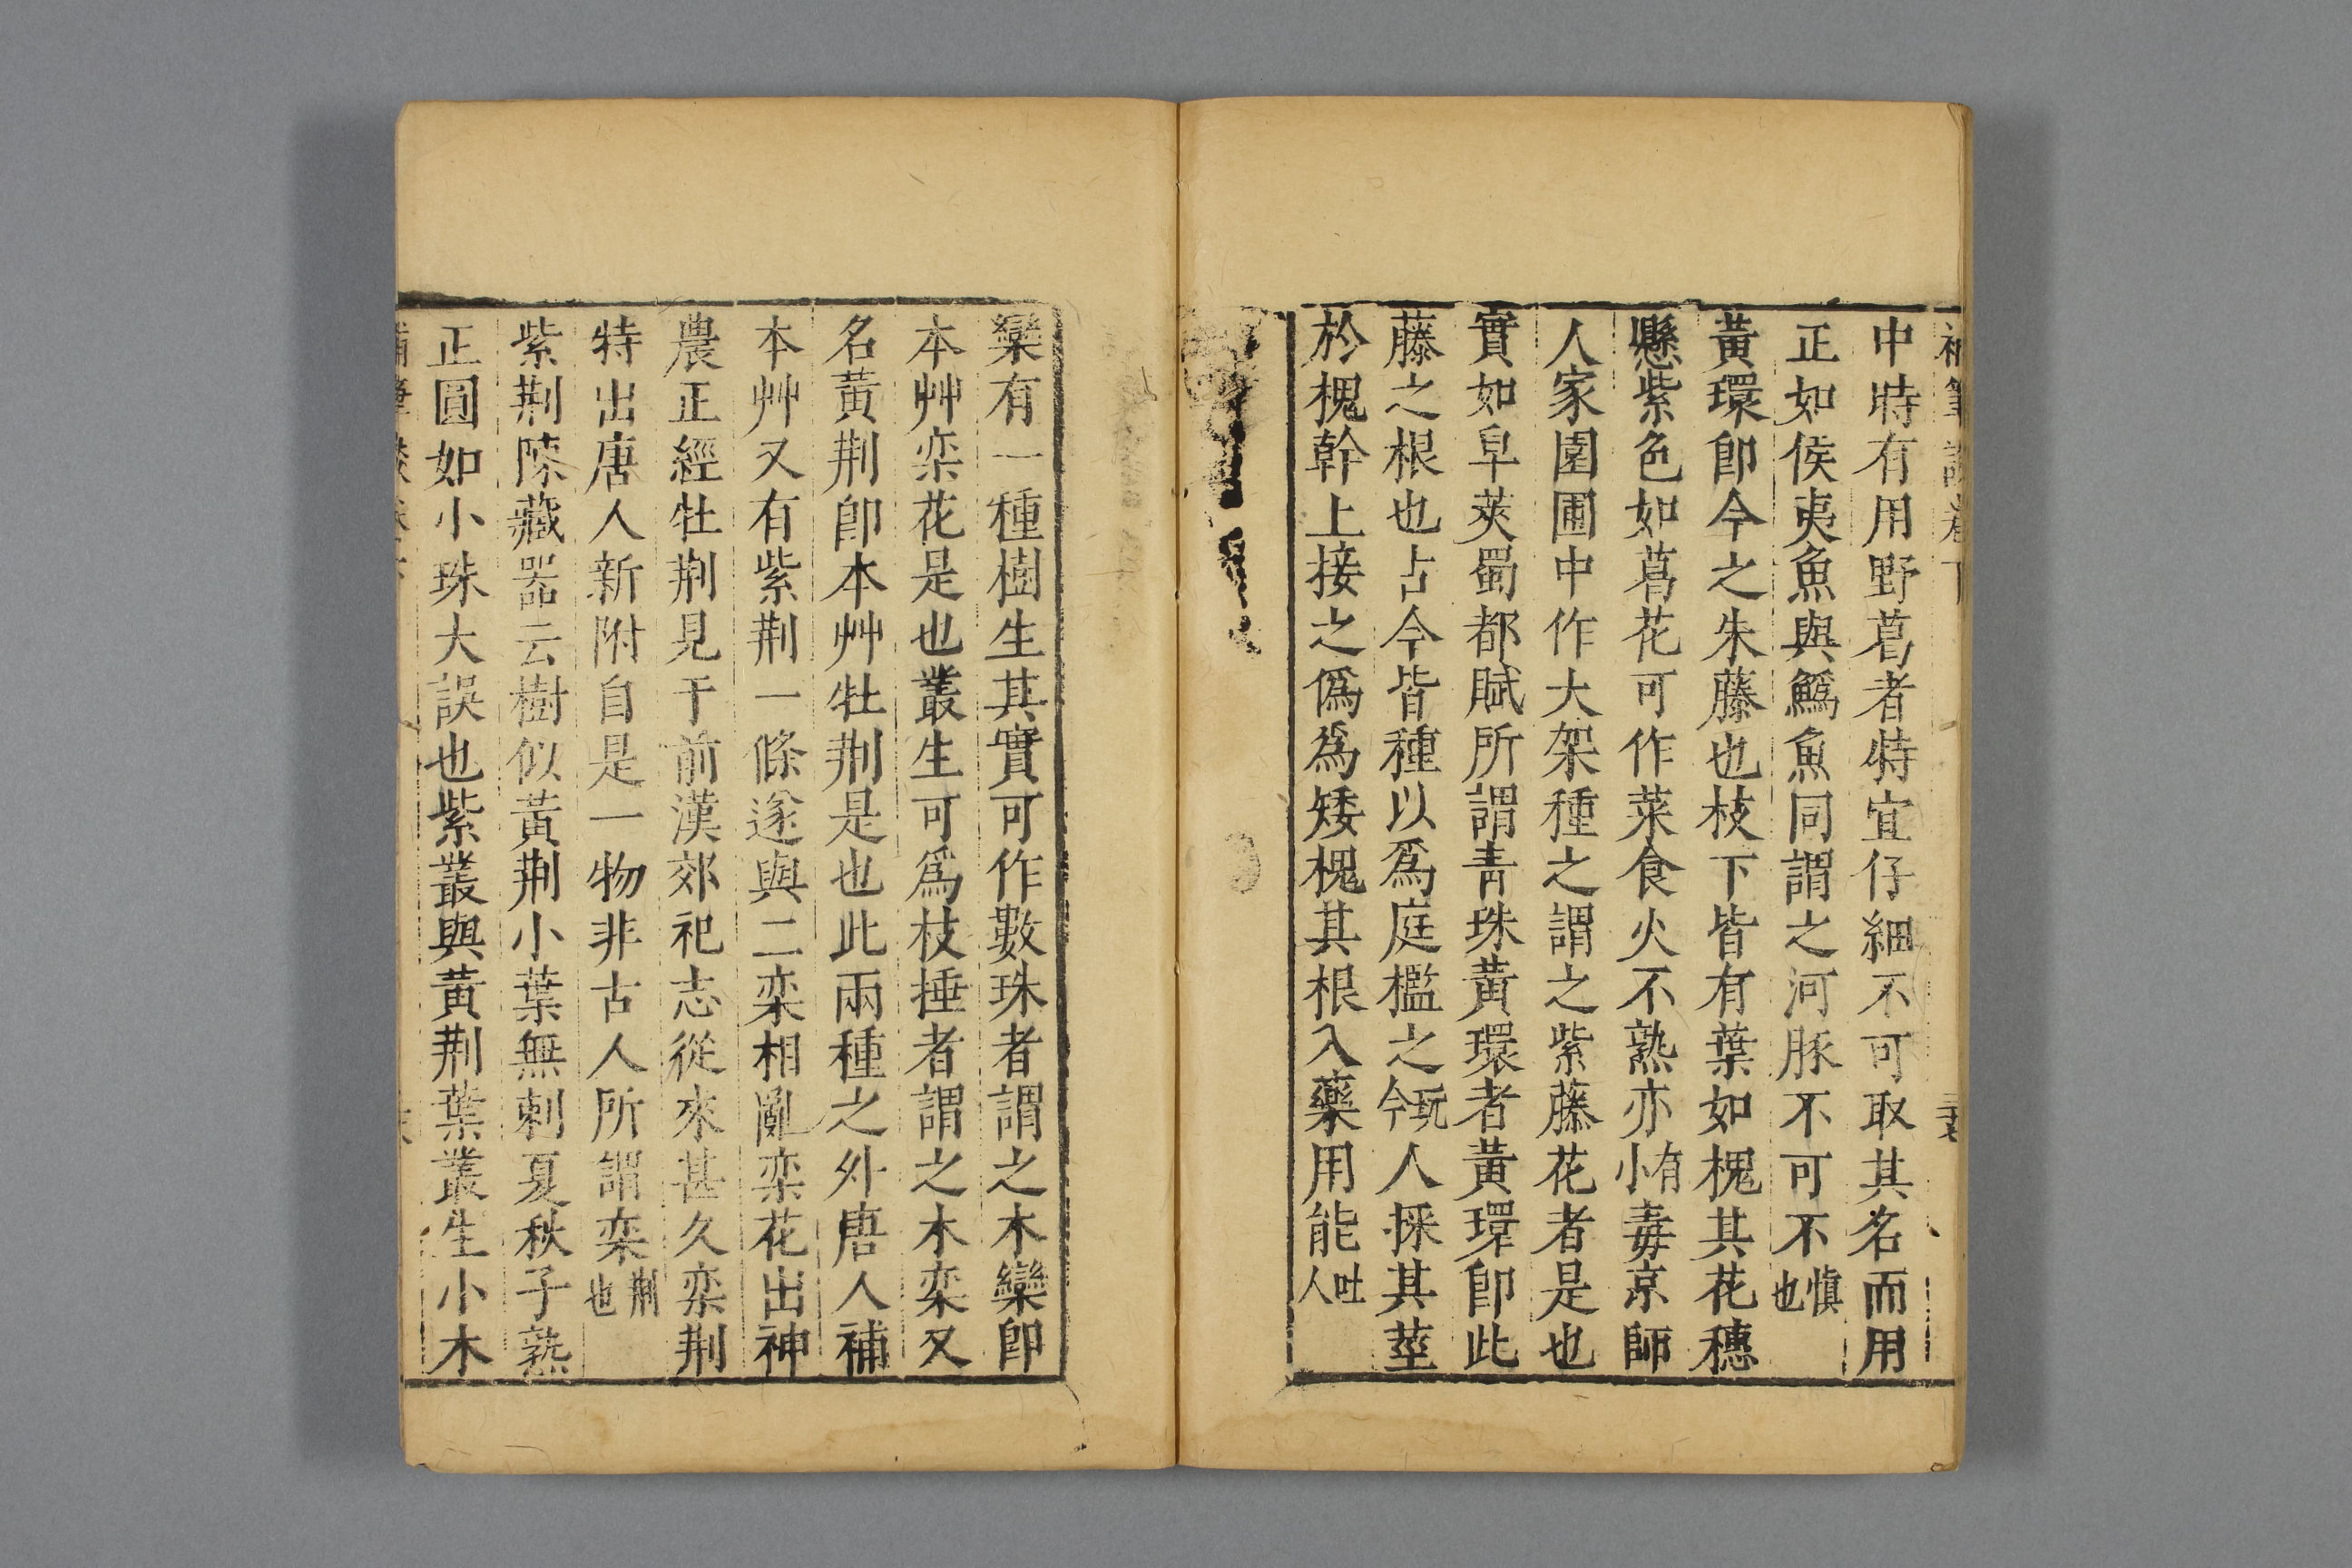 補筆談卷下
中時有用野葛者特宜仔細不可取其名而用
正如侯夷魚與鰞魚同謂之河豚不可不慎也
黃環即今之朱藤也枝下皆有葉如槐其花穗
懸紫色如葛花可作菜食火不熟亦有小毒京師
人家園圃中作大架種之謂之紫藤花者是也
實如皁莢蜀都賦所謂青珠黃環者黃環即此
藤之根也占今皆種以為庭檻之玩今人採其莖
於槐幹上接之偽為矮槐其根入藥用能吐人
欒有一種樹生其實可作數珠者謂之木欒即
本艸栾花是也叢生可為枝捶者謂之木栾又
名黃荆即本艸牡荆是也此兩種之外唐人補
本艸又有紫荆一條遂與二栾相亂栾花出神
農正經牡荆見于前漢郊祀志從來甚久栾荆
特出唐人新附自是一物非古人所謂栾荆也
紫荆陳藏器云樹似黃荆小葉無刺夏秋子熟
正圓如小珠大誤也紫叢與黃荆葉叢生小木